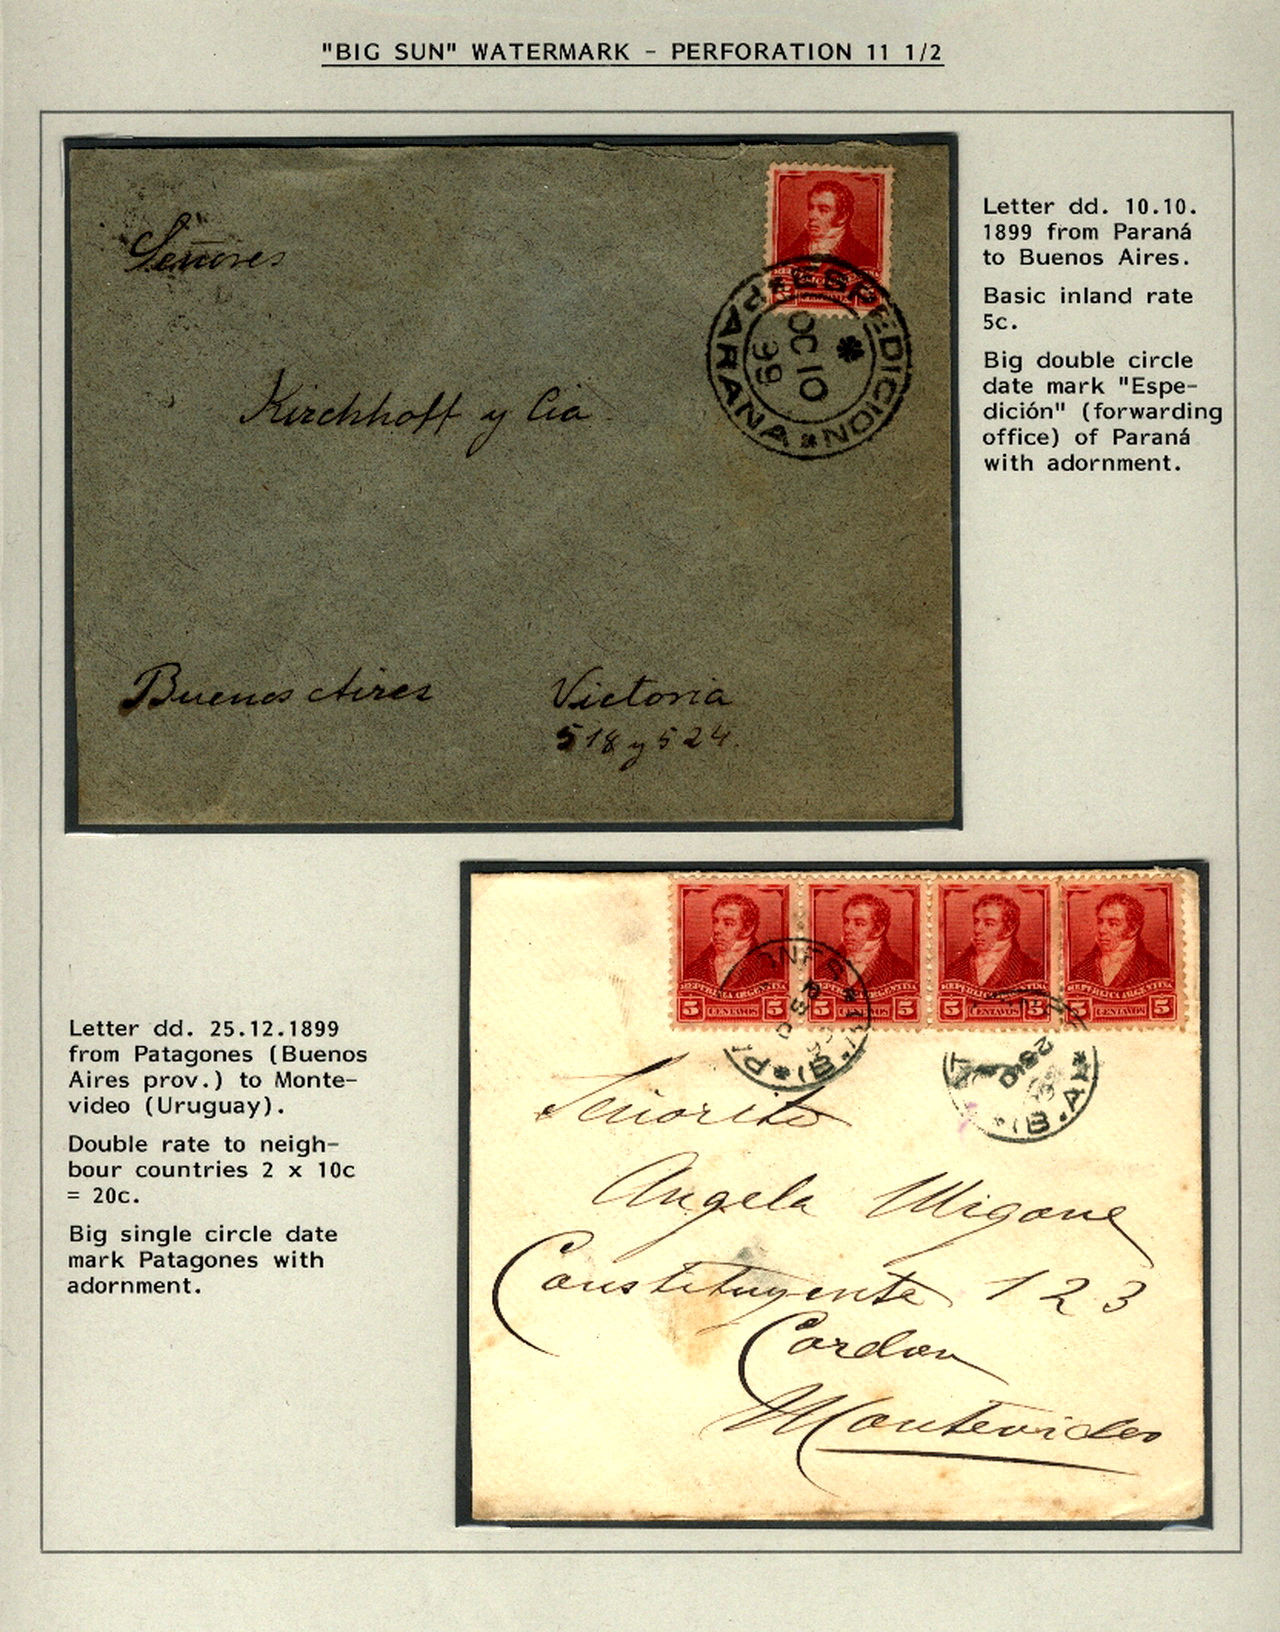 "BIG SUN" WATERMARK - PERFORATION 11 1/2
Señores
Kirchhoff y Cia
Buenos Aires
Victoria
518 y 524.
ESPEDICION
PARANA
OC 10
99
Letter dd. 10.10.
1899 from Paraná
to Buenos Aires.
Basic inland rate
5c.
Big double circle
date mark "Espe-
dición" (forwarding
office) of Paraná
with adornment.
Letter dd. 25.12.1899
from Patagones (Buenos
Aires prov.) to Monte-
video (Uruguay).
Double rate to neigh-
bour countries 2 x 10c
= 20c.
Big single circle date
mark Patagones with
adornment.
REPUBLICA ARGENTINA
5 CENTAVOS 5
REPUBLICA ARGENTINA
5 CENTAVOS 5
REPUBLICA ARGENTINA
5 CENTAVOS 5
REPUBLICA ARGENTINA
5 CENTAVOS 5
Señorita
Angela Migone
Constituyente 123
Cordon
Montevideo